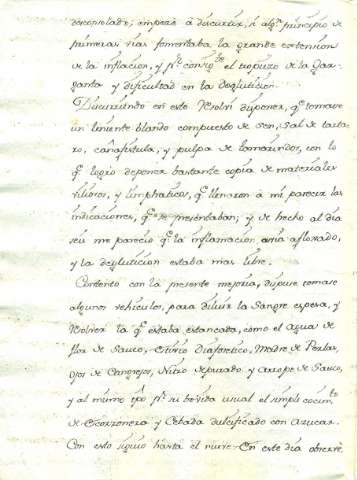 desconsolado; empesè à discurrir, si alg.ⁿ principio de
primeras vias fomentaba la grande extension
de la inflacion, y p.r consig.te el tropiezo de la Gar-
ganta y dificultad en la deglutición.
Discurriendo en esto Resolvi disponer, q.e tomase
un liniente blando compuesto de sen, sal de tarta-
ro, cañafistula, y pulpa de tamarindos, con lo
q.e logrò deponer bastante copia de materiales
viliosos, y limphaticos, q.e llenaron à mi parecer las
indicaciones, q.e se presentaban; y de hecho al dia
seis me pareciò q.e la inflamacion avia afloxado,
y la deglutición estaba mas libre.
Contento con la presente mejoria, dispuse tomase
algunos vehiculos, para diluir la Sangre espesa, y
Resolver la q.e estaba estancada, como el agua de
flor de Sauco, Estivio Diaforetico, Madre de Perlas,
Ojos de Cangrejos, Nitro depurado y Arrope de Sauco,
y al mismo tpo p.r su bevida usual el simple cocim.to
de Escorzonera y Cebada dulcificado con Azucar.
Con esto siguiò hasta el nueve. En este dia observè,